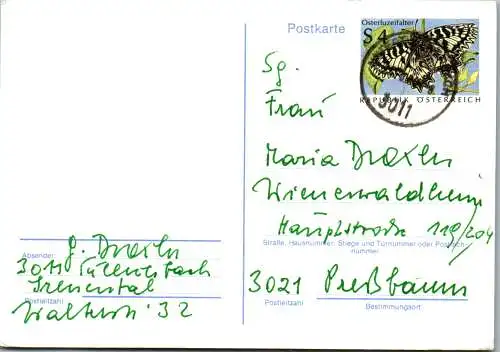 Postkarte
Osterluzeifalter
S 4
REPUBLIK ÖSTERREICH
3011
Sg.
Frau
Maria Draxler
Wienerwaldheim
Hauptstraße 119/204
Straße, Hausnummer, Stiege und Türnummer oder Postfach-
nummer
3021 Preßbaum
Postleitzahl
Bestimmungsort
Absender
J. Draxler
3011
Irenental
32
Postleitzahl